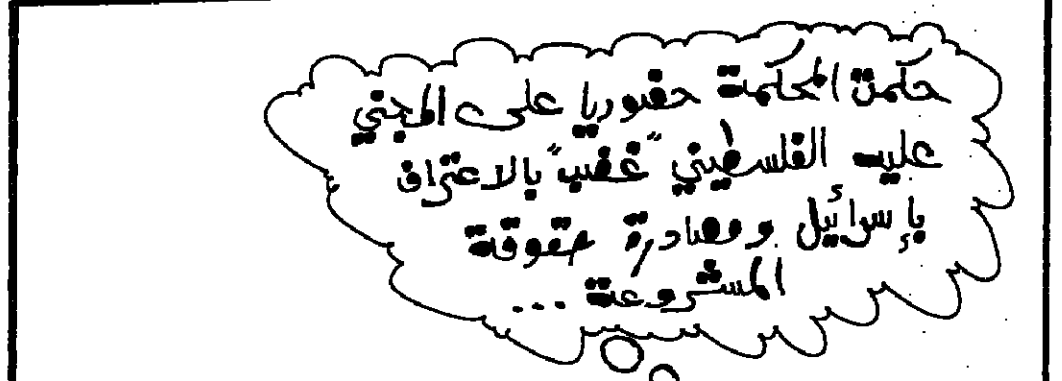 حكمة المحكمة حضوريا على المجني
عليه الفلسطيني "غضب" بالاعتراف
بإسرائيل ومصادرة حقوقة
المشروعة ...